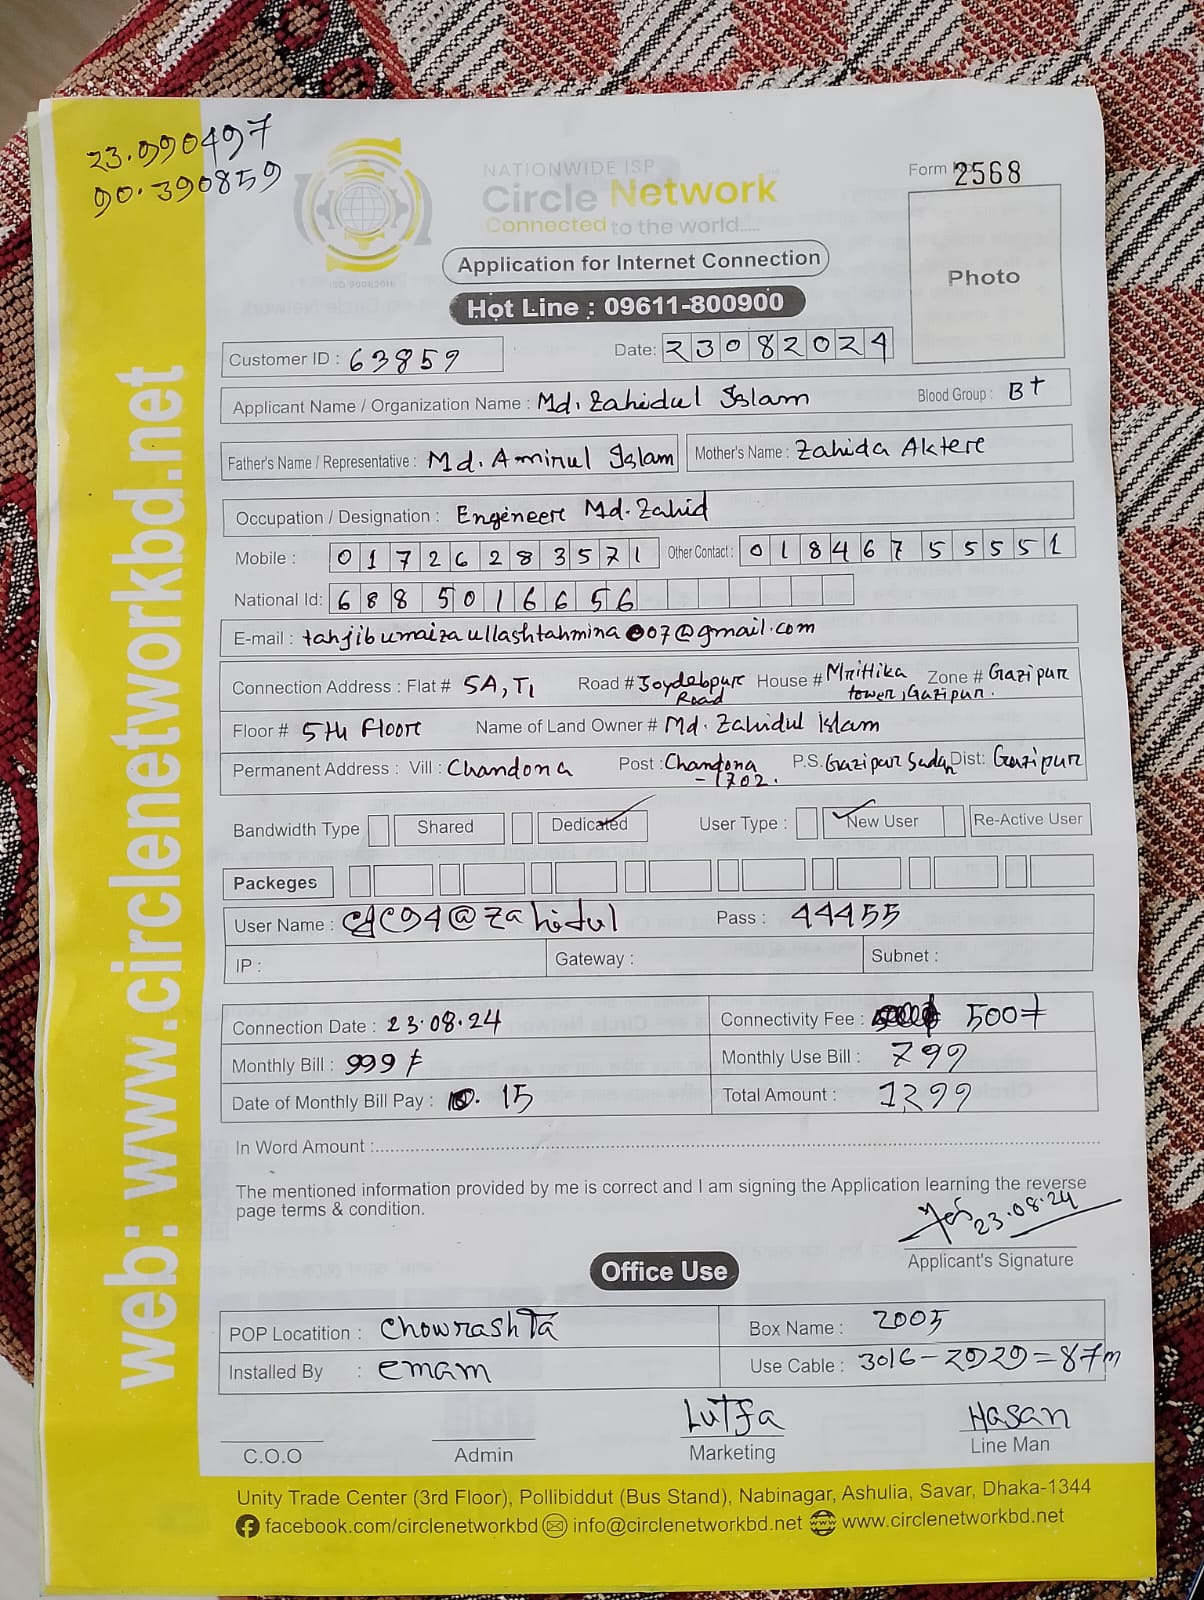 23.990497
90.390859
NATIONWIDE ISP
Circle Network
Connected to the world.....
ISO 9001:2015
Form No. 2568
Application for Internet Connection
Photo
Hot Line : 09611-800900
Customer ID : 63859 Date: 23082024
Applicant Name / Organization Name : Md. Zahidul Islam Blood Group : B+
Father's Name / Representative : Md. Aminul Islam Mother's Name : Zahida Aktere
Occupation / Designation : Engeneer Md. Zahid
Mobile : 01726283571 Other Contact : 01846755551
National Id: 6885016656
E-mail : tahjibumaizaullashtahmina007@gmail.com
Connection Address : Flat # 5A, T1 Road # Joydebpur Road House # Mrittika tower, Gazipur. Zone # Gazipur
Floor # 5th Floor Name of Land Owner # Md. Zahidul Islam
Permanent Address : Vill : Chandona Post : Chandona -1702. P.S. Gazipur Sadar Dist: Gazipur
Bandwidth Type Shared Dedicated User Type : New User Re-Active User
Packeges
User Name : @Zahidul Pass : 44455
IP : Gateway : Subnet :
Connection Date : 23.08.24 Connectivity Fee : 500/=
Monthly Bill : 999/= Monthly Use Bill : 799
Date of Monthly Bill Pay : 15 Total Amount : 1299
In Word Amount :
The mentioned information provided by me is correct and I am signing the Application learning the reverse
page terms & condition.
23.08.24
Applicant's Signature
Office Use
POP Locatition : Chowrashta Box Name : 2005
Installed By : emam Use Cable : 3016-2929=87m
C.O.O Admin Lutfa Marketing Hasan Line Man
Unity Trade Center (3rd Floor), Pollibiddut (Bus Stand), Nabinagar, Ashulia, Savar, Dhaka-1344
facebook.com/circlenetworkbd info@circlenetworkbd.net www.circlenetworkbd.net
web: www.circlenetworkbd.net